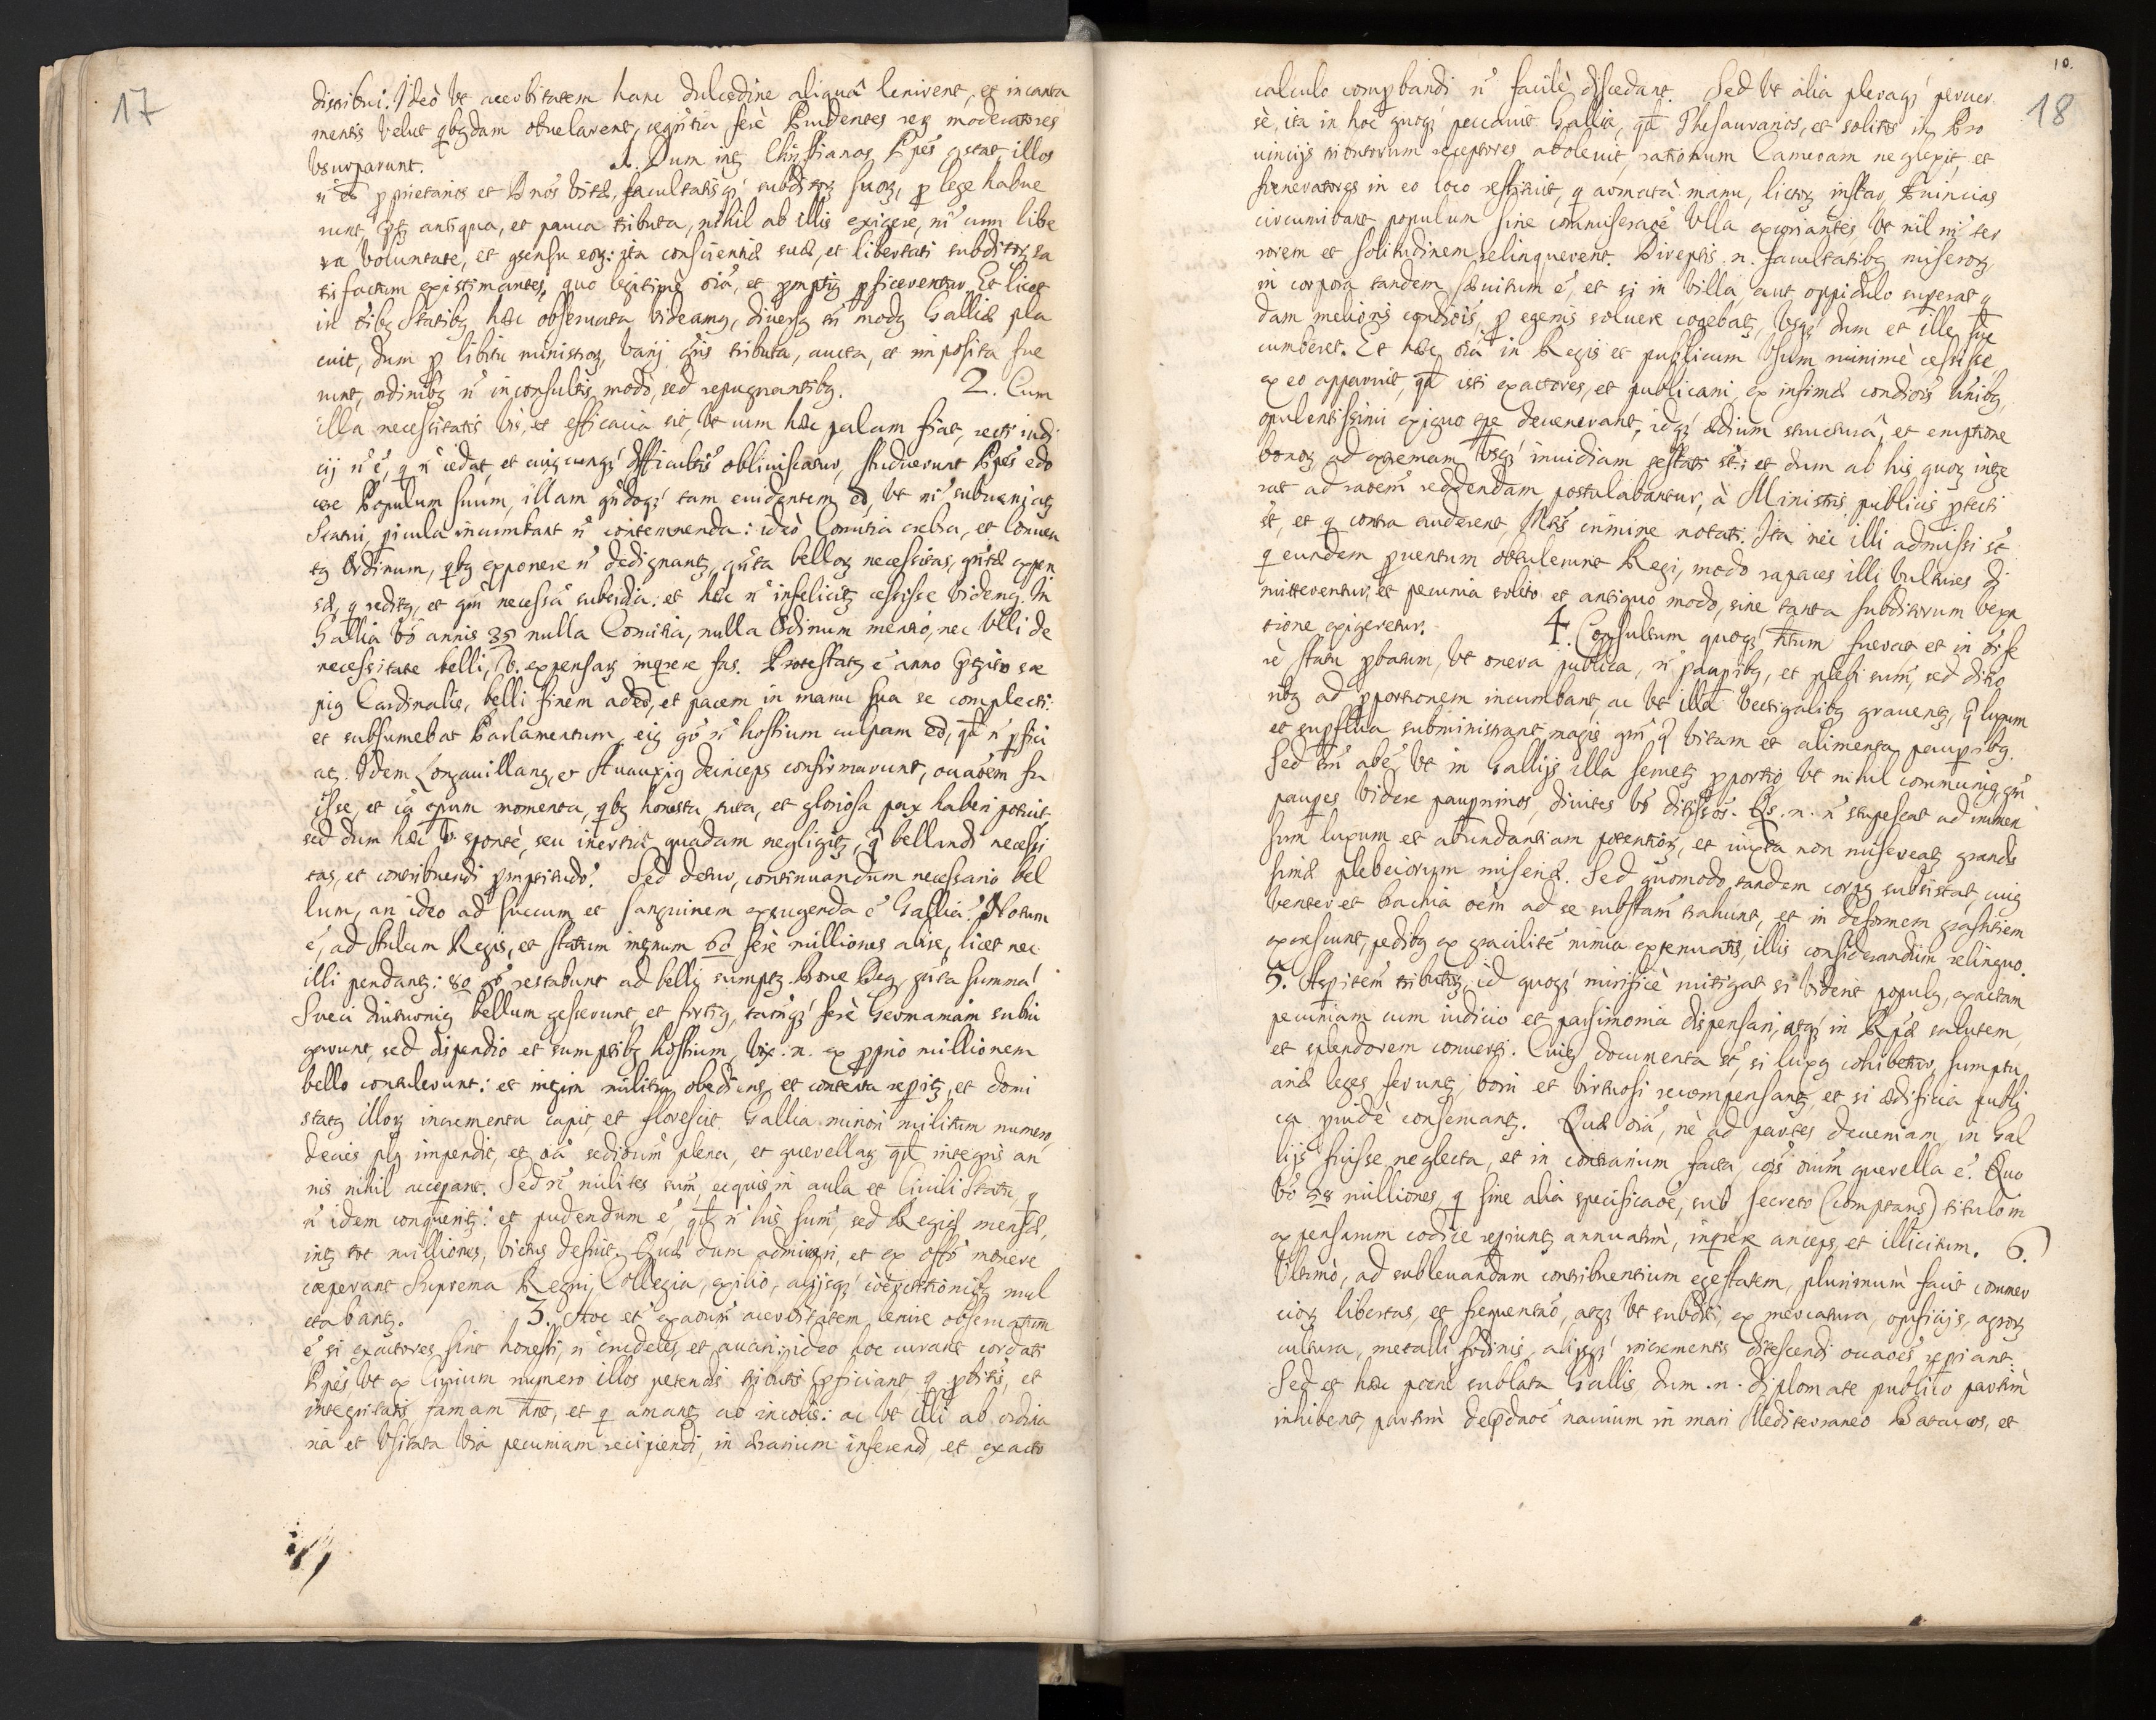 17
distribui. Ideò Vt acerbitatem hanc dulcedine aliquâ lenirent, et incanta
mentis velut qbqdam obuelarent, seqütia ferè Prudentes reꝝ moderatores
Vsurparunt. 1. Dum intꝫ Chrystianos Ppes ꝯstat, illos
rietarios et Dnos Vitæ, facultatisqꝫ subditoꝝ suoꝝ, ꝓ lege habue
runt, antiqua, et pauca tributa, nihil ab illis exigere, ni cum libe
ra Voluntate, et ꝯsensu eoꝝ: ita conscientiæ suæ, et libertati subditoꝝ sa
tisfactum existimantes, quo legitimè oia, et promptiꝰ ꝑficerentur. Et licet
in oibꝰ Statibꝰ hæc obseruata Videamꝰ, diuersꝰ tñ modꝰ Galliæ pla
cuit, dum ꝓ libitu ministroꝝ, Varij gñis tributa, aucta, et imposita fue
runt, ordinibꝰ ñ inconsultis modò, sed repugnantibꝰ. 2. Cum
illa necessitatis Vis, et efficacia sit, Vt cum hæc palam fiat, recti iudi
cij ñ é, q ñ cedat, et cuiꝰcunqꝫ difficultis obliuiscatur, studuerunt Ppes edo
cere Populum suum, illam tam euidentem eê, Vt ni subueniatꝫ
Statui, picula incumbant ñ contemnenda: ideò Comitia crebra, et Conuen
tꝰ Ordinum, qbꝰ exponere ñ dedignantꝫ, quta belloꝝ necessitas, qutæ expen
sæ, q reditꝰ, et qm necessa subsidia: et hæc ñ infeliciꝫ cessisse Videmꝰ. In
Gallia Vò annis 35 nulla Comitia, nulla Ordinum mentio, nec Vlli de
necessitate belli, expensaꝝ inqrere fas. Protestatꝰ é anno sæ
piꝰ Cardinalis, belli finem adeê, et pacem in manu sua se complecti:
et subsumebat Parlamentum, eiꝰ gò ñ hostium culpam eê, qd ñ ꝑfici
atꝫ. Idem Longauillanꝰ, et deinceps confirmarunt, occasionem fu
isse, et momenta, qbꝰ honesta, tuta, et gloriosa pax haberi potuit,
sed dum hæc sponte, seu inertia quadam negligitꝫ, q bellandi necessi
tas, et contribuendi ꝓmptitudo? Sed detur, continuandum necessario bel
lum, an ideo ad succum et sanguinem exsugenda é Gallia? Notum
é, ad Aulam Regis, et statum internum 60 ferè milliones abire, licet nec
illi pendantꝫ: 80 Vò restabunt ad belli sumptꝰ. Bone Deꝰ, quta summa!
Sueci diuturniꝰ bellum gesserunt, et fortiꝰ, ferè Germaniam subiu
garunt, sed dispendio et sumptibꝰ hostium, Vix .n. ex ꝓprio millionem
bello contulerunt: et interim militiꝰ obediens, et contenta repitꝫ, et domi
statꝰ illoꝝ incrementa capit, et florescit. Gallia minori militum numero,
decies plꝰ impendit, et oia seditiom plena, et querellaꝝ qd integris an
nis nihil accipiant. Sed ñ milites sum, ecquis in aula et Ciuili Statu, q
ñ idem conqueritꝫ: et pudendum é, qd ñ his sum, sed Regiæ mensæ,
intꝫ tot milliones, Victus desuit. Quæ dum admirari, et ex offo monere
cæperant Suprema Regni Collegia, exilio, alijsqꝫ mul
ctabantꝫ. 3. Hoc et exactionum acerbitatem lenire obseruatum
é si exactores sint honesti, ñ crudeles, et auari: ideo hoc curant cordati
Ppes Vt ex Ciuium numero illos petendis tributis ꝑficiant q ꝓbitis, et
integritatis famam hnt, et q amantꝫ ab incolis: ac Vt illi ab ordina
ria et Vsitata Via pecuniam recipiendi, in ærarium inferendi, et exacto
10.
18
calculo comꝓbandi ñ facilè discedant. Sed Vt alia pleraqꝫ peruer
sè, ita in hoc qutqꝫ peccauit Gallia, qd Thesaurarios, et solitos in Pro
uincijs tributorum receptores aboleuit, rationum Cameram neglexit, et
fæneratores in eo loco restituit, q armatâ manu, lictoꝝ instar, Puincias
circumibant, populum sine commiseraoe Vlla excoriantes, Vt nil ni ter
rorem et solitudinem relinquerent. Direptis .n. facultatibꝰ miseroꝝ,
in corpora tandem sæuitum é, et si in Villa, aut oppidulo superat q
dam melioris condiois, ꝓ egenis soluere cogebatꝫ, Vsqꝫ dum et ille suc
cumberet. Et hæc oia in Regis et publicum Vsum minimè cessisse,
ex eo apparuit, qd isti exactores, et publicani, ex infimæ condiois hnibꝰ,
opulentissimi exiguo tpe deuenerant, idqꝫ ædium structurâ, et emptione
bonoꝝ ad extremam Vsqꝫ inuidiam testati st: et dum ab his, quoꝝ inte
rat ad raoem reddendam postulabantur, à Ministris publicis ꝓtecti
st, et q contra auderent, Mtis crimine notati. Ita nec illi admissi st
q eundem ꝓuentum obtulerunt Regi, modo rapaces illi Vultures di
mitterentur, et pecunia solito et antiquo modo, sine tanta subditorum Vexa
tione exigeretur. 4. Consultum quoqꝫ fuerat et in oi fe
rè statu ꝓbatum, Vt onera publica, ñ pauꝑibꝰ, et plebi sum, sed ditio
ribꝰ ad ꝓportionem incumbant, ac Vt illa Vectigalibꝰ grauentꝫ, q luxum
et suꝑflua subministrant, magis qm q Vitam et alimenta pauꝑibꝰ.
Sed tm abé, Vt in Gallijs illa seruetꝫ ꝓportio Vt nihil communiꝰ, qm
pauꝑes Videre pauꝑrimos, diuites Vò ditissos. Qs .n. ñ stupescat ad immen
sum luxum et abundantiam potentioꝝ, et iuxta non misereatꝫ grandis
simæ plebeiorum miseriæ. Sed quomodo tandem corpꝰ subsistat, cuiꝰ
Venter et bachia oem ad se substam trahunt, et in deformem grassitiem
excrescunt, pedibꝰ ex gracilite nimia extenuatis, illis considerandum relinquo.
5. Asperitem tributoꝝ id quoqꝫ mirificè mitigat si Videat populꝰ, exactam
pecuniam cum iudicio et parsimonia dispensari, atqꝫ in Rpcæ salutem,
et splendorem conuerti. Cuiꝰ documenta st, si luxꝰ cohibetur, sumptu
ariæ leges feruntꝫ, boni et Virtuosi recompensantꝫ, et si ædificia publi
ca ꝓuidè conseruantꝫ. Quæ oia, nè ad partes deueniam, in Gal
lijs fuisse neglecta, et in contrarium facta, cois oium querella é. Quo
Vò 58 milliones, q sine alia specificaoe, sub secreto (comptans) titulo in
expensarum codice reꝑiuntꝫ annuatim, inqrere anceps, et illicitum. 6.)
Vltimò, ad subleuandam contribuentium egestatem, plurimùm facit commer
cioꝝ libertas, et frequentio, atqꝫ Vt subditi, ex mercatura, opificijs, agroꝝ
cultura, metalli fodinis, alijsqꝫ incrementis ditescendi occaoes reꝑiant.
Sed et hæc penè sublata Gallis, dum .n. diplomate publico partim
inhibent, partim depdaoe nauium in mari Mediterraneo Batauos, et